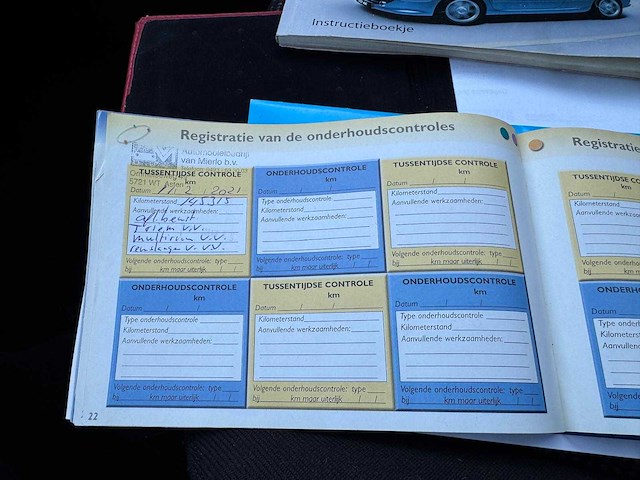 Instructieboekje
Registratie van de onderhoudscontroles
Automobielbedrijf
van Mierlo b.v.
5721 WT Asten
TUSSENTIJDSE CONTROLE
km
Datum 11 2 2021
Kilometerstand 145315
Aanvullende werkzaamheden:
multiriem v.v.
Volgende onderhoudscontrole: type
bij km maar uiterlijk / /
ONDERHOUDSCONTROLE
km
Datum / /
Type onderhoudscontrole
Kilometerstand
Aanvullende werkzaamheden:
Volgende onderhoudscontrole: type
bij km maar uiterlijk / /
TUSSENTIJDSE CONTROLE
km
Datum / /
Kilometerstand
Aanvullende werkzaamheden:
Volgende onderhoudscontrole: type
bij km maar uiterlijk / /
ONDERHOUDSCONTROLE
km
Datum / /
Type onderhoudscontrole
Kilometerstand
Aanvullende werkzaamheden:
Volgende onderhoudscontrole: type
bij km maar uiterlijk / /
TUSSENTIJDSE CONTROLE
km
Datum / /
Kilometerstand
Aanvullende werkzaamheden:
Volgende onderhoudscontrole: type
bij km maar uiterlijk / /
ONDERHOUDSCONTROLE
km
Datum / /
Type onderhoudscontrole
Kilometerstand
Aanvullende werkzaamheden:
Volgende onderhoudscontrole: type
bij km maar uiterlijk / /
22
Registratie
TUSSENTIJDSE CO
Datum /
Kilometerstand
Aanvullende werkza
Volgende onderhoudsc
bij km m
ONDERHO
Datum
Type onderho
Kilometersta
Aanvullen
Volgende on
bij